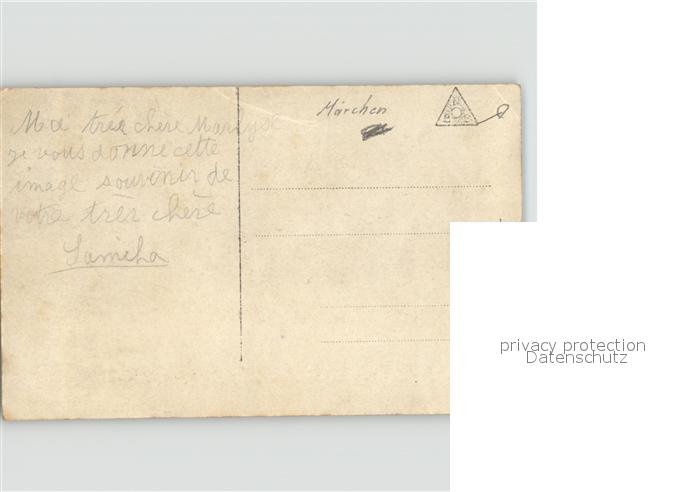 Ma très chère Marlyse
je vous donne cette
image souvenir de
votre très chère
Samiha
Märchen
privacy protection
Datenschutz